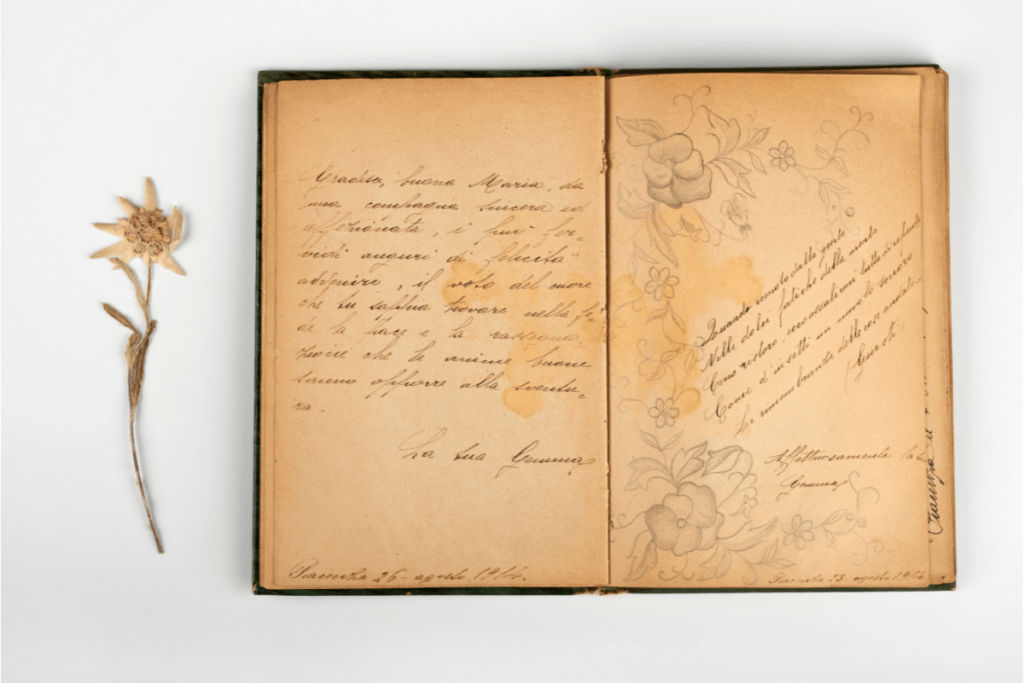 Gradisci, buona Maria, da
una compagna sincera ed
affezionata, i più fer-
vidi auguri di felicità
addivire, il voto del cuore
che tu sabbia trovare nella fe-
de la pace e la rassegna-
zione che le anime buone
sanno offrire alla sventu-
ra.
La tua Gemma
Piacenza 26 - agosto 1914.
Quando remoto dalla gente
Nelle dolci fatiche della mente
Cerco ristoro, ecco assalirmi
Come d'insetti un nuvolo sonoro
Le rimembranze delle cose andate...
Affettuosamente la tua
Gemma
Piacenza agosto 1914
Piacenza